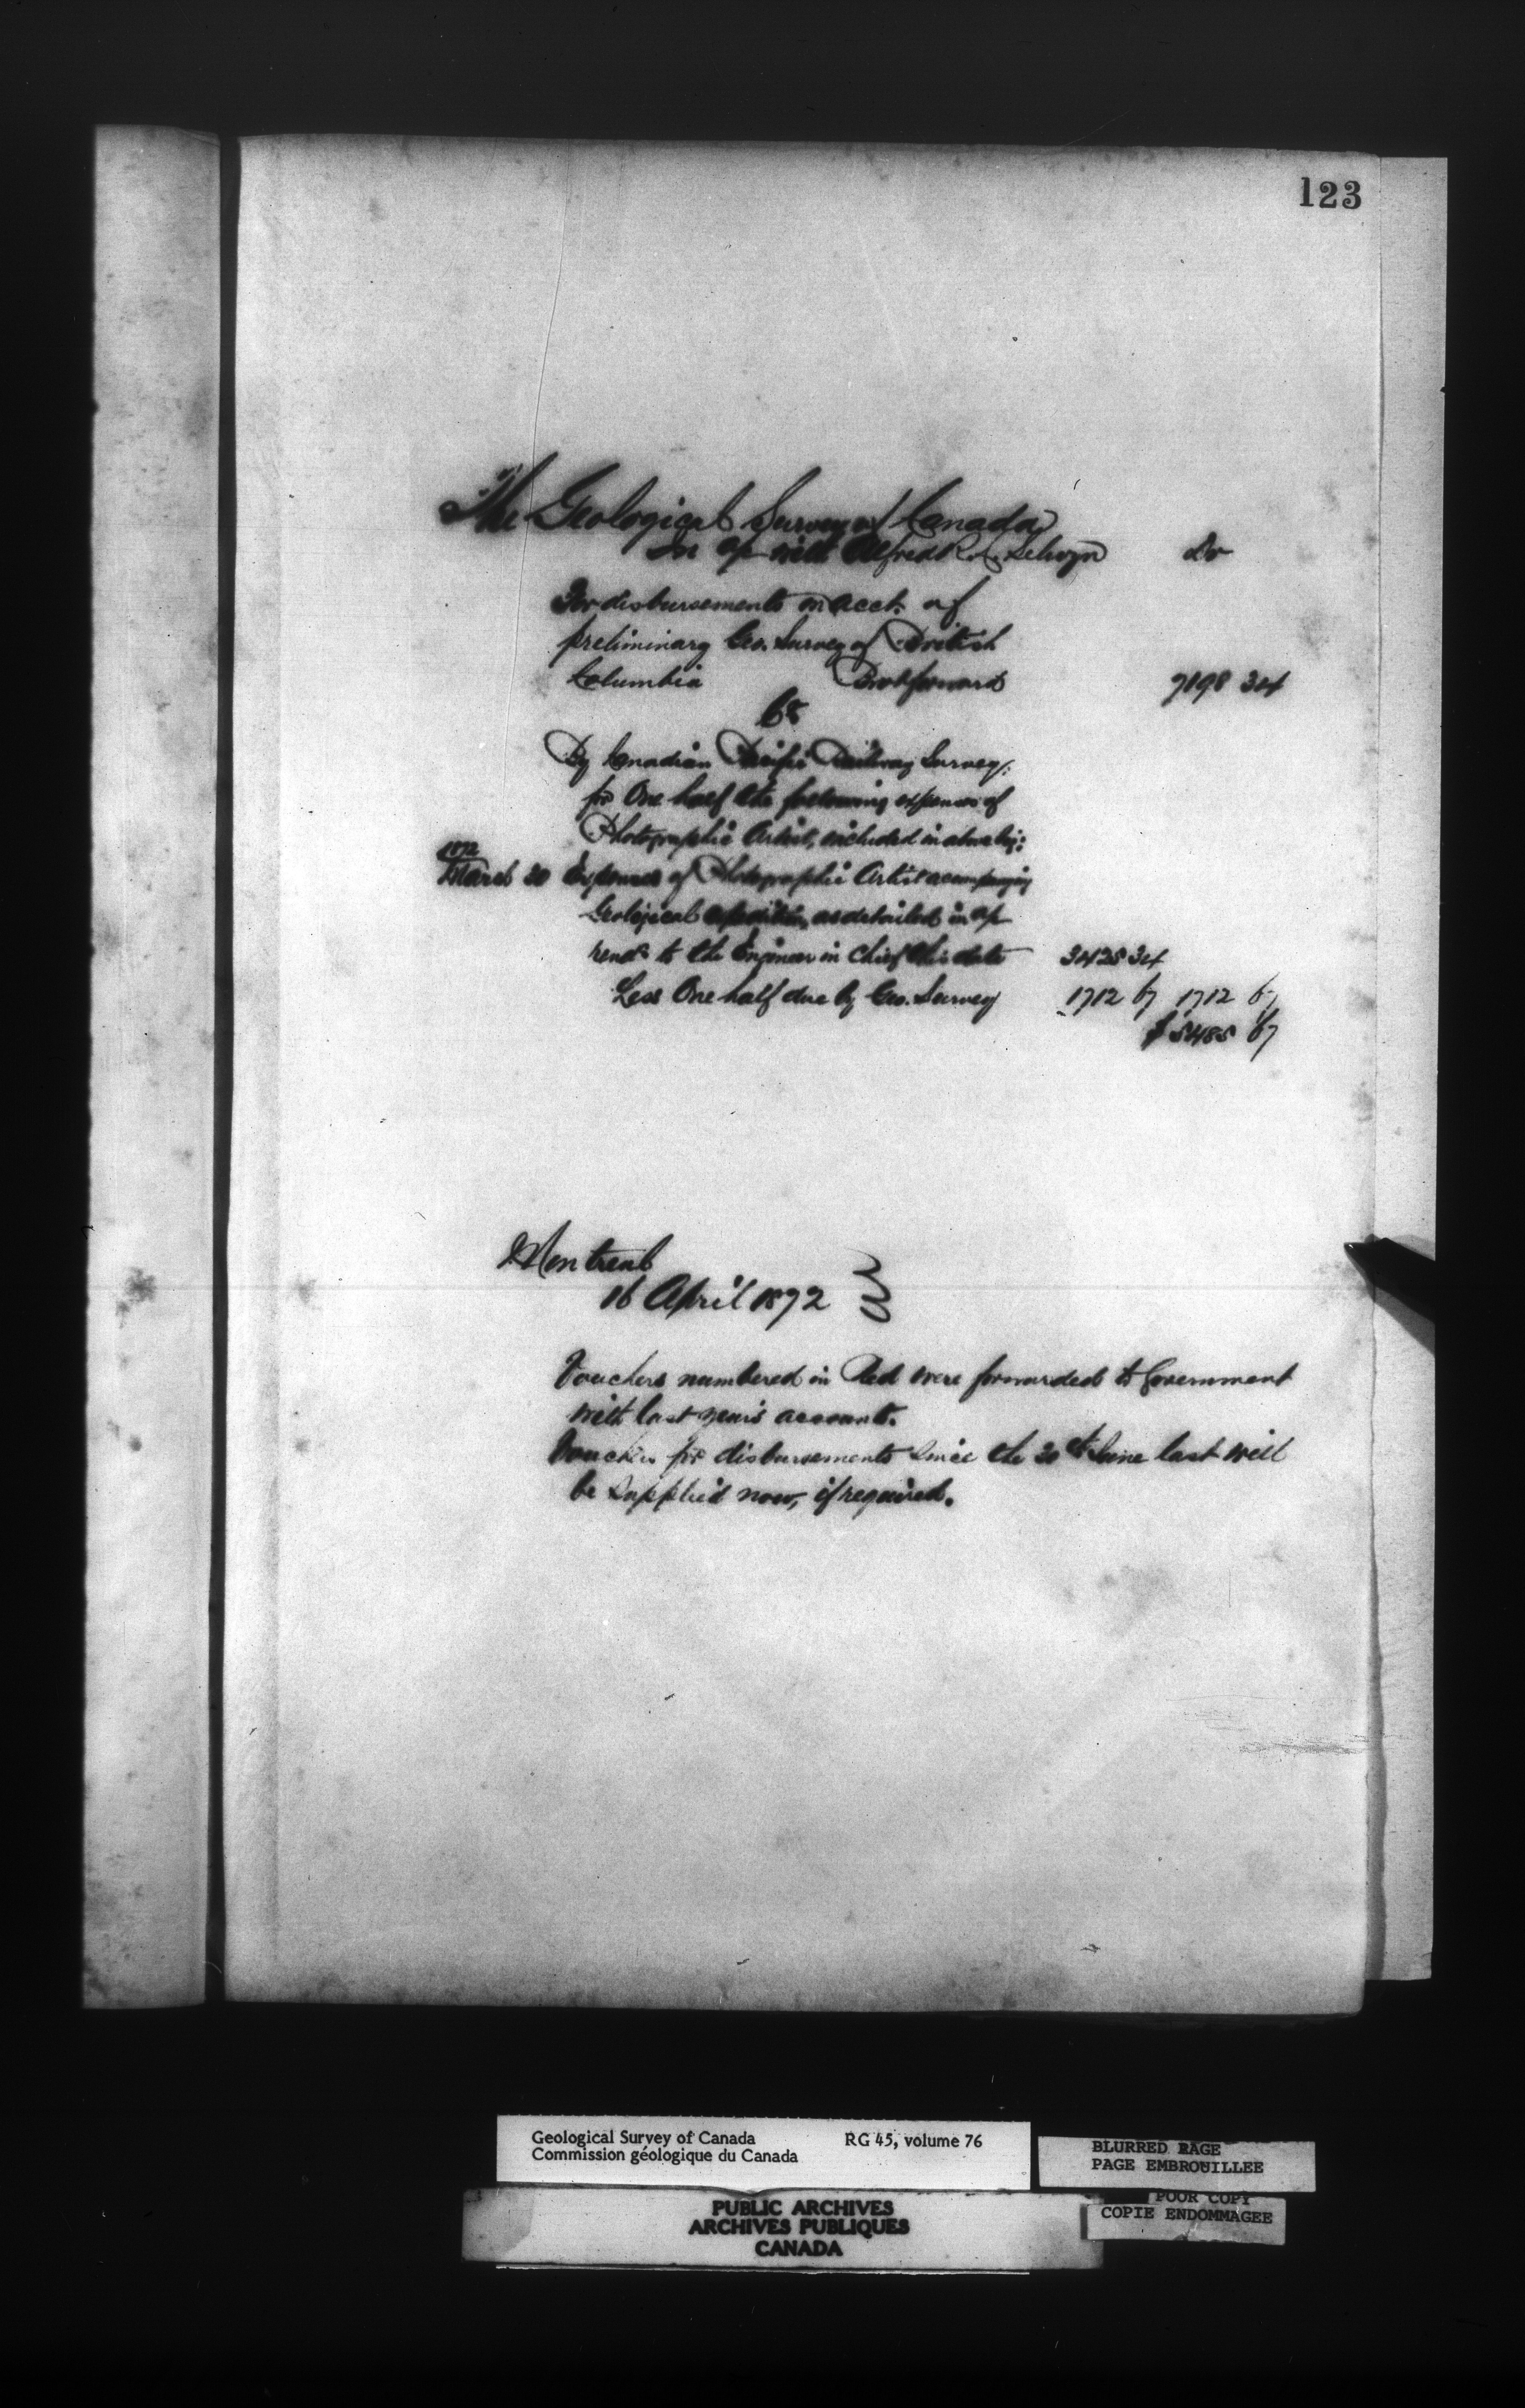 123
The Geological Survey of Canada
In a/c with Alfred R. C. Selwyn Dr
For disbursements on acct. of
preliminary Geo. Survey of British
Columbia Brot forward 7198 34
Cr
By Canadian Pacific Railway Survey:
for One half the following expenses of
Photographic Artist, included in above
1872
March 30 Expenses of Photographic Artist accompanying
Geological expedition, as detailed in a/c
rendd to the Engineer in Chief this date 3425 34
Less One half due by Geo. Survey 1712 67 1712 67
$ 5485 67
Montreal
16 April 1872
Vouchers numbered in Red were forwarded to Government
with last years accounts.
Vouchers for disbursements since the 30th June last will
be supplied now, if required.
Geological Survey of Canada RG 45, volume 76
Commission géologique du Canada
BLURRED PAGE
PAGE EMBROUILLEE
POOR COPY
COPIE ENDOMMAGEE
PUBLIC ARCHIVES
ARCHIVES PUBLIQUES
CANADA